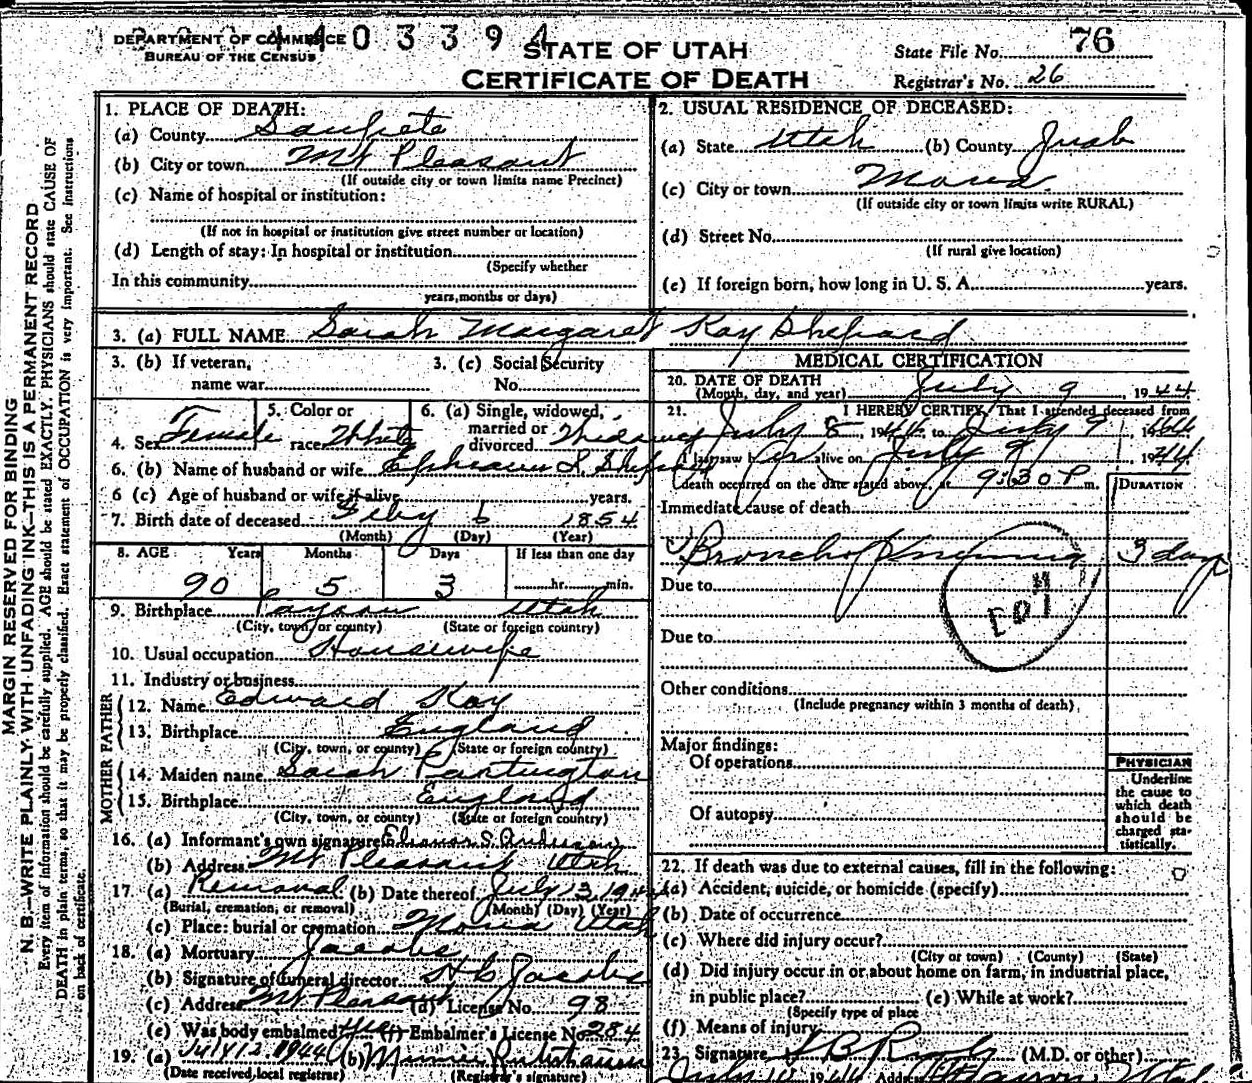 DEPARTMENT OF COMMERCE
BUREAU OF THE CENSUS
4403394
STATE OF UTAH
CERTIFICATE OF DEATH
State File No. 76
Registrar's No. 26
MARGIN RESERVED FOR BINDING
N. B.—WRITE PLAINLY WITH UNFADING INK—THIS IS A PERMANENT RECORD
Every item of information should be carefully supplied. AGE should be stated EXACTLY. PHYSICIANS should state CAUSE OF
DEATH in plain terms, so that it may be properly classified. Exact statement of OCCUPATION is very important. See instructions
on back of certificate.
1. PLACE OF DEATH:
(a) County Sanpete
(b) City or town Mt Pleasant
(If outside city or town limits name Precinct)
(c) Name of hospital or institution:
(If not in hospital or institution give street number or location)
(d) Length of stay: In hospital or institution
(Specify whether
In this community
years, months or days)
2. USUAL RESIDENCE OF DECEASED:
(a) State Utah (b) County Juab
(c) City or town Mona
(If outside city or town limits write RURAL)
(d) Street No.
(If rural give location)
(e) If foreign born, how long in U. S. A. years.
3. (a) FULL NAME Sarah Margaret Kay Shepard
3. (b) If veteran,
name war
3. (c) Social Security
No.
4. Sex Female
5. Color or
race White
6. (a) Single, widowed,
married or
divorced Widowed
6. (b) Name of husband or wife Ephraim S. Shepard
6 (c) Age of husband or wife if alive years.
7. Birth date of deceased Feby 6 1854
(Month) (Day) (Year)
8. AGE Years Months Days If less than one day
90 5 3 hr. min.
9. Birthplace Payson Utah
(City, town, or county) (State or foreign country)
10. Usual occupation Housewife
11. Industry or business
FATHER
12. Name Edward Kay
13. Birthplace England
(City, town, or county) (State or foreign country)
MOTHER
14. Maiden name Sarah Partington
15. Birthplace England
(City, town, or county) (State or foreign country)
16. (a) Informant's own signature Eleanor S. Anderson
(b) Address Mt Pleasant Utah
17. (a) Removal (b) Date thereof July 13 1944
(Burial, cremation, or removal) (Month) (Day) (Year)
(c) Place: burial or cremation Mona Utah
18. (a) Mortuary Jacobs
(b) Signature of funeral director H C Jacobs
(c) Address Mt Pleasant (d) License No. 98
(e) Was body embalmed Yes (f) Embalmer's License No. 284
19. (a) July 12 1944 (b)
(Date received local registrar) (Registrar's signature)
MEDICAL CERTIFICATION
20. DATE OF DEATH
(Month, day, and year) July 9, 1944
21. I HEREBY CERTIFY, That I attended deceased from
July 8, 1944 to July 9, 1944
I last saw her alive on July 9 1944
death occurred on the date stated above, at 9:30 P m.
DURATION
Immediate cause of death
Broncho Pneumonia 3 days
Due to
107
Due to
Other conditions
(Include pregnancy within 3 months of death)
Major findings:
Of operations
Of autopsy
PHYSICIAN
Underline
the cause to
which death
should be
charged sta-
tistically.
22. If death was due to external causes, fill in the following:
(a) Accident, suicide, or homicide (specify)
(b) Date of occurrence
(c) Where did injury occur?
(City or town) (County) (State)
(d) Did injury occur in or about home on farm, in industrial place,
in public place? (e) While at work?
(Specify type of place
(f) Means of injury
23. Signature (M.D. or other)
Address